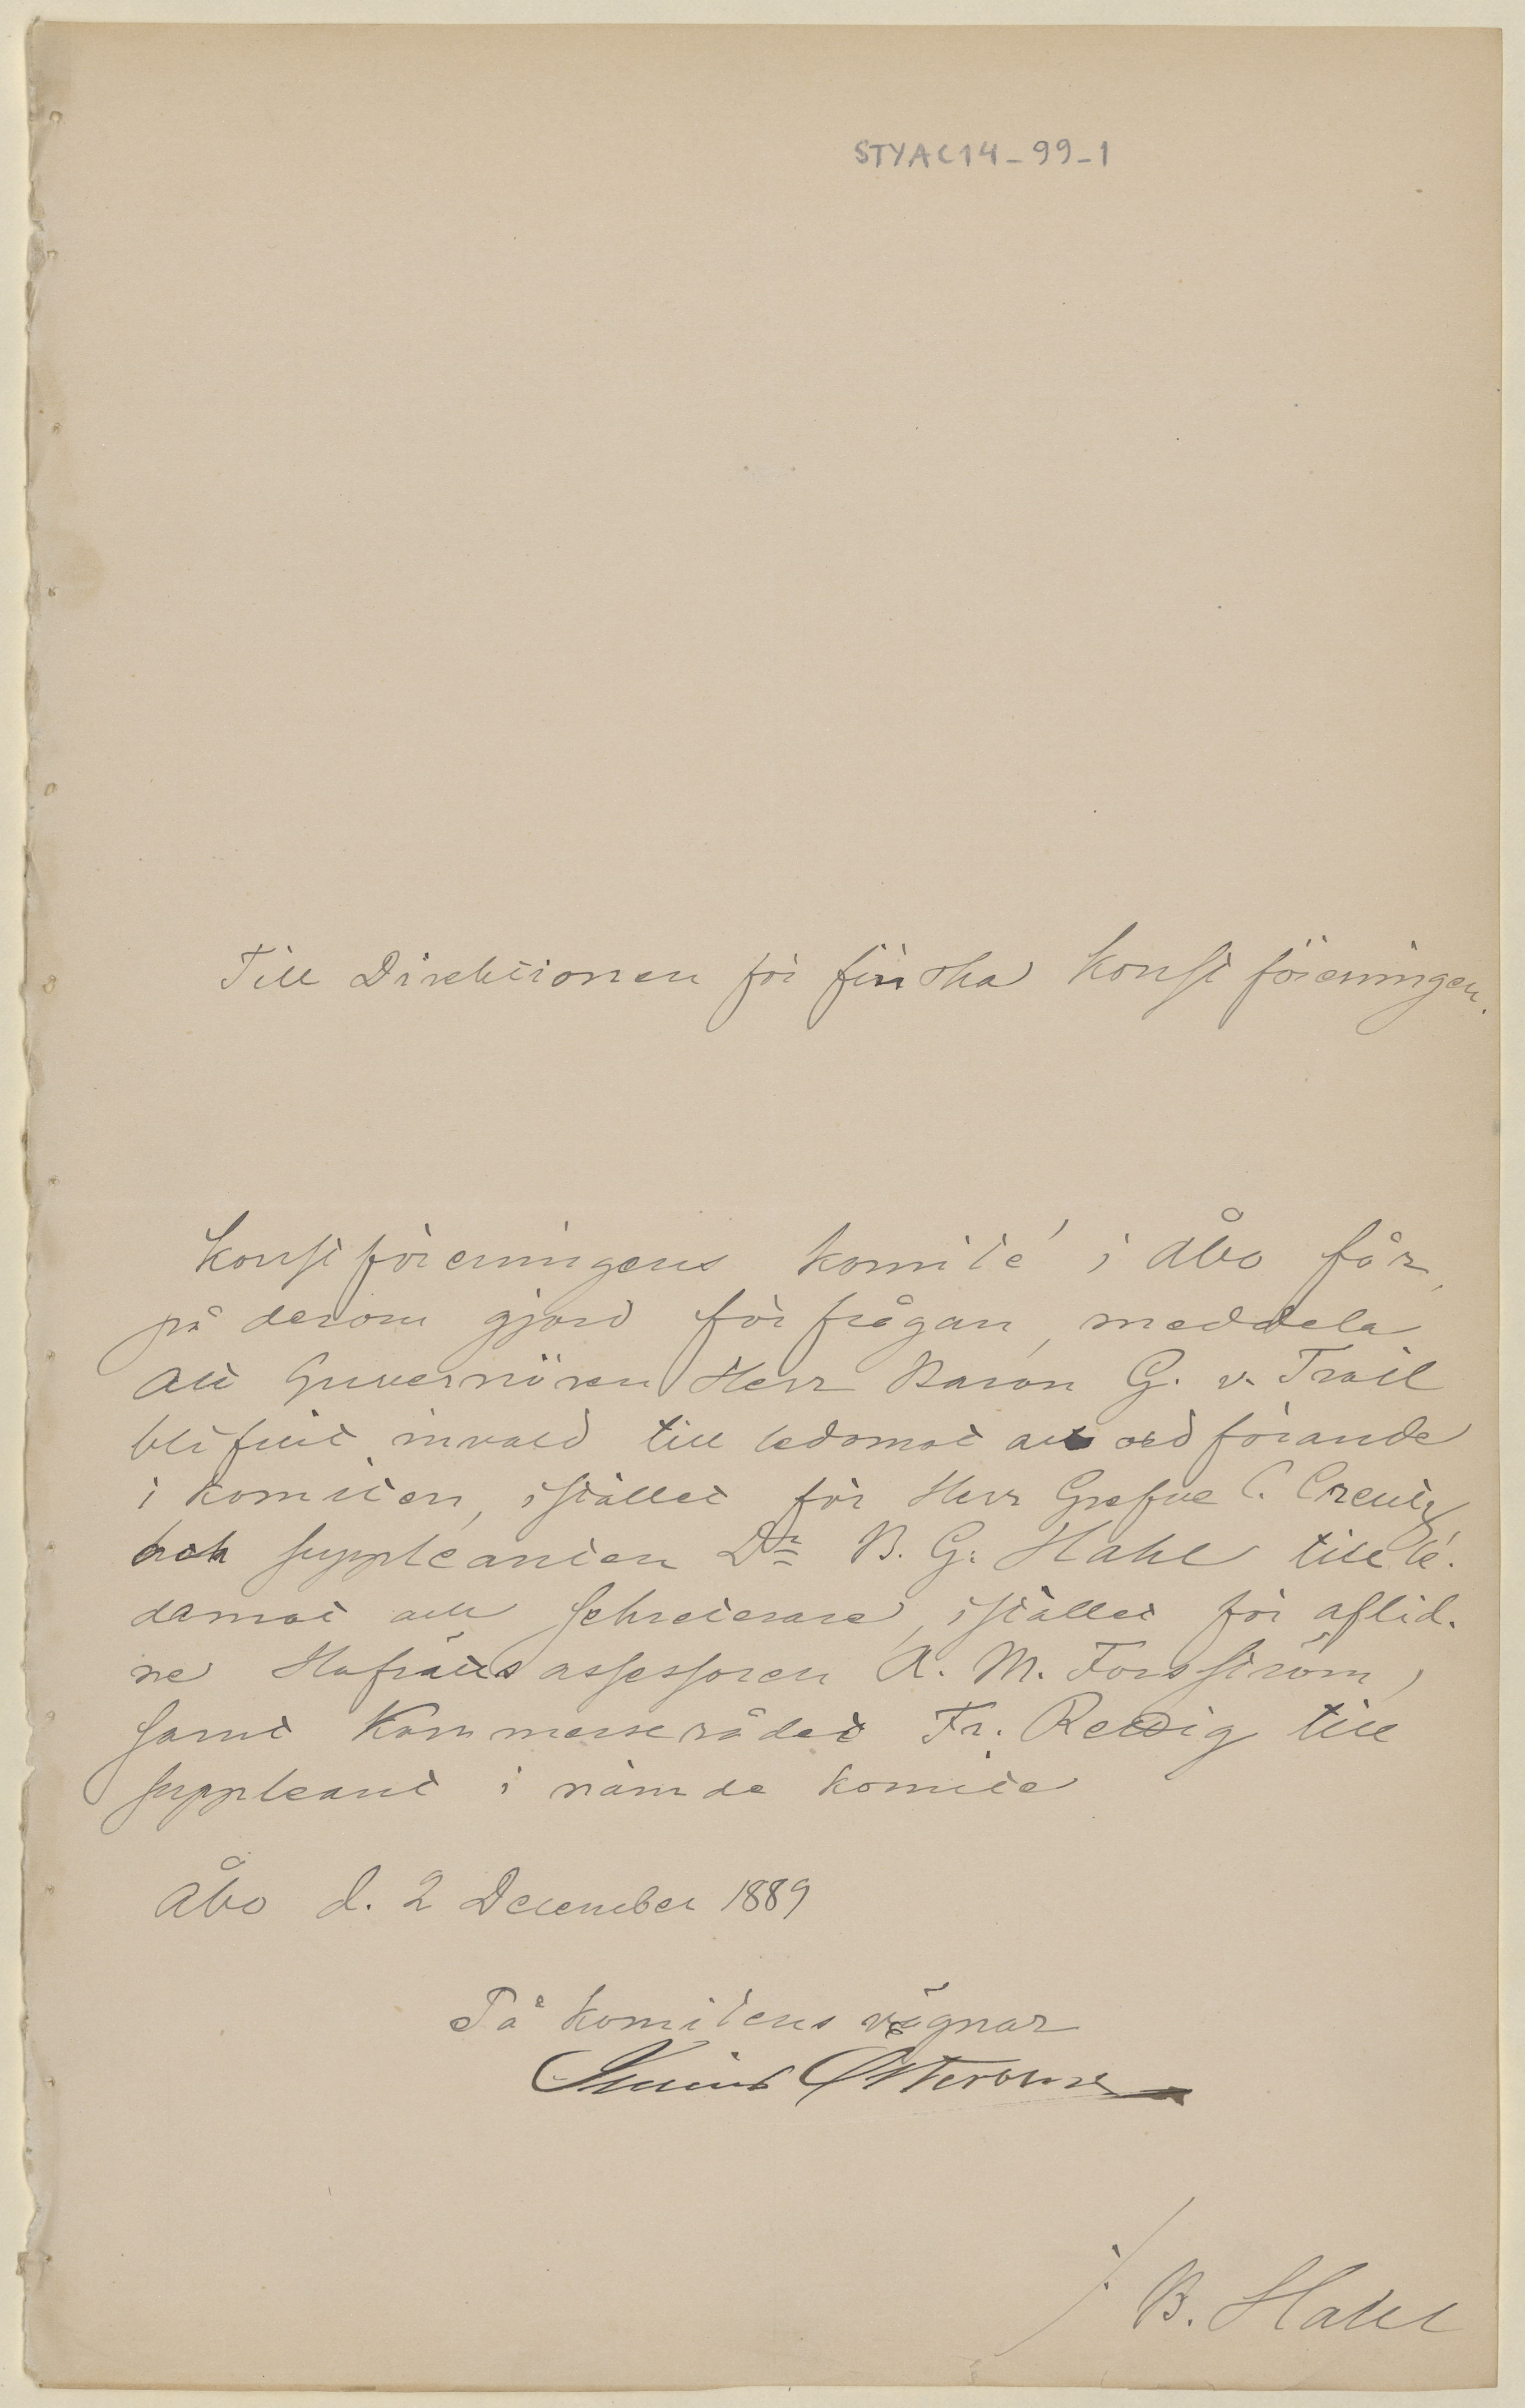 STYAC14-99-1
Till Direktionen för finska konstföreningen.
Konstföreningens komité i Åbo får,
på derom gjord förfrågan, meddela
att Guvernören Herr Baron G. v. Troil
blifvit invald till ledamot att ordförande
i komitén, istället för Herr Grefve C. Creutz
och suppleanten Dr B. G. Hahl till le-
damot och sekreterare, istället för aflid-
ne Hofrättsassessoren A. M. Forsström,
samt Kommerserådet Fr. Rettig till
suppleant i nämde komite
Åbo d. 2 December 1889
På komitens vägnar
Österblom
/. B. Hahl